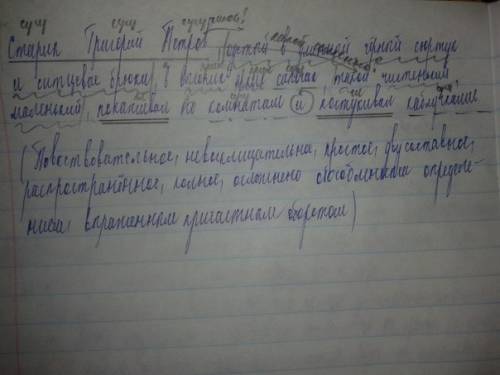 сущ сущ сущ
Старик Григорий Петров, одетый в длинный чёрный сюртук
и ситцевые брюки, в больших такой чистенький
маленький, похаживал по комнатам и постукивал каблучками
(Повествовательное, невосклицательна, простое, двусоставное,
распространённое, полное, осложнено обособленным определе-
нием выраженным причастным оборотом)